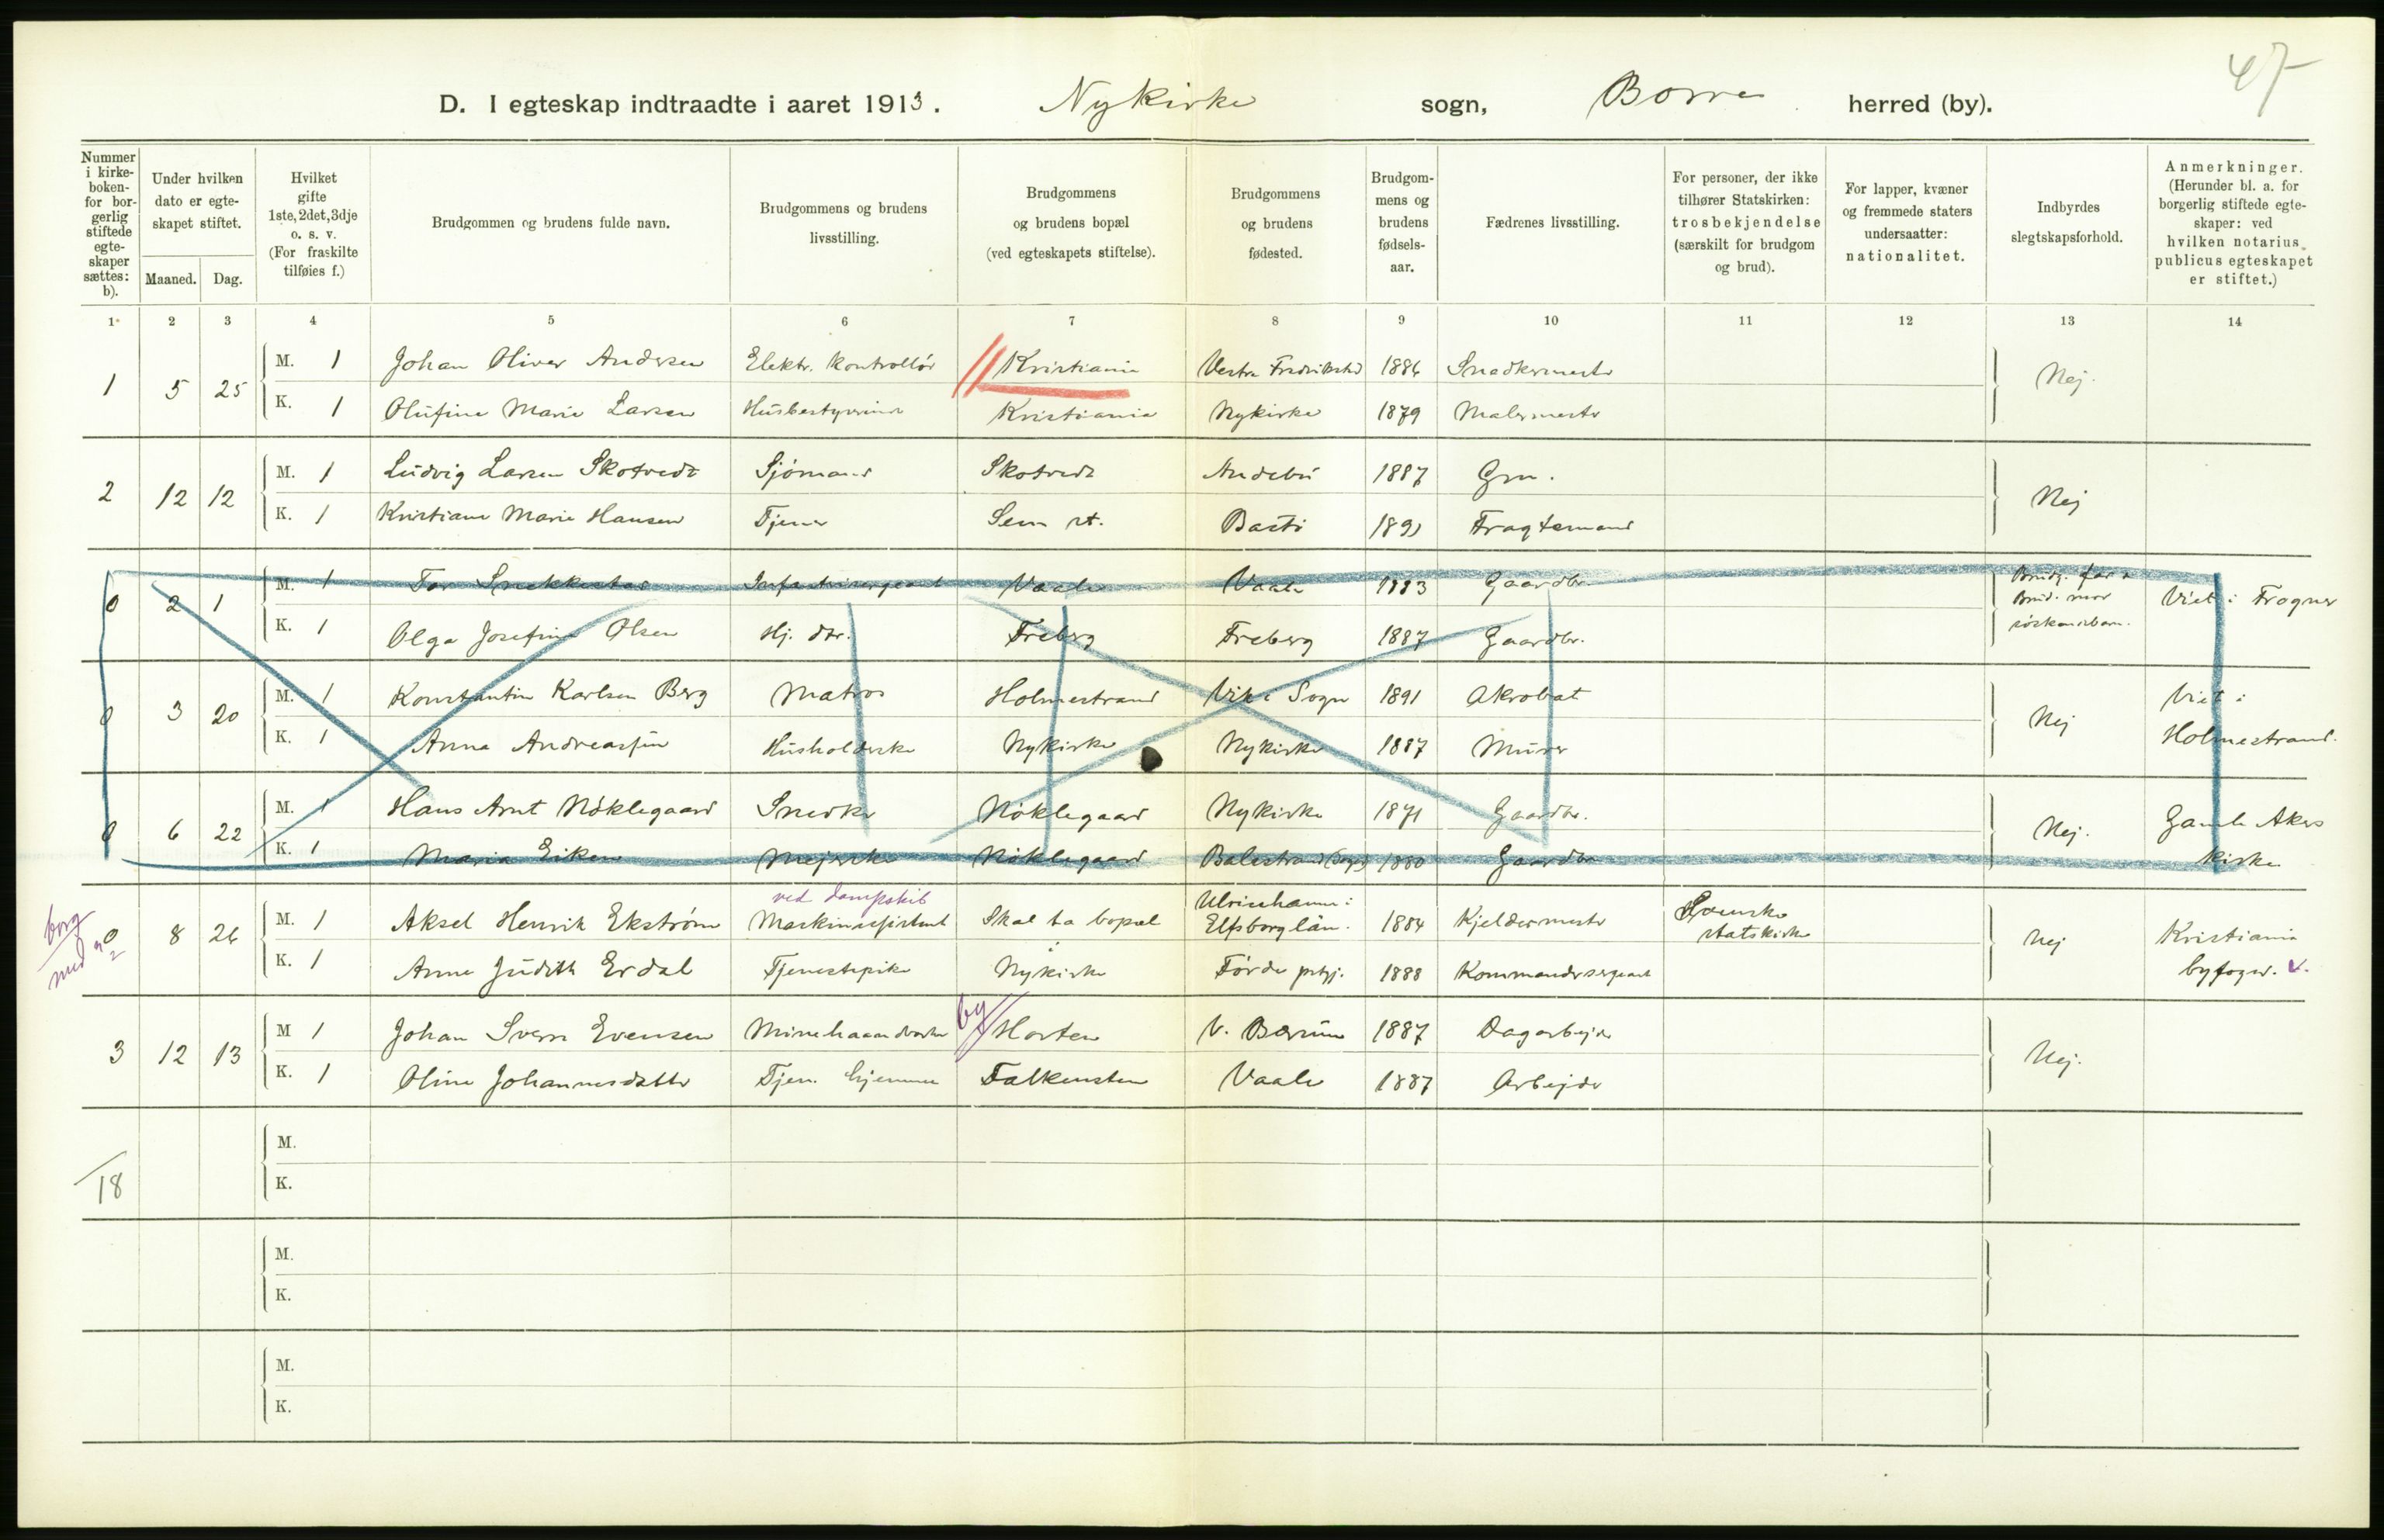 47
D. I egteskap indtraadte i aaret 1913. Nykirke sogn, Borre herred (by).
Nummer i kirke-boken- for bor-gerlig stiftede egte-skaper sættes: b).
Under hvilken dato er egte-skapet stiftet.
Maaned. Dag.
Hvilket gifte 1ste, 2det, 3dje o. s. v. (For fraskilte tilføies f.)
Brudgommen og brudens fulde navn.
Brudgommens og brudens livsstilling.
Brudgommens og brudens bopæl (ved egteskapets stiftelse).
Brudgommens og brudens fødested.
Brudgom-mens og brudens fødsels-aar.
Fædrenes livsstilling.
For personer, der ikke tilhører Statskirken: trosbekjendelse (særskilt for brudgom og brud).
For lapper, kvæner og fremmede staters undersaatter: nationalitet.
Indbyrdes slegtskapsforhold.
Anmerkninger. (Herunder bl. a. for borgerlig stiftede egte-skaper: ved hvilken notarius publicus egteskapet er stiftet.)
1 2 3 4 5 6 7 8 9 10 11 12 13 14
1 5 25 M. 1 Johan Oliver Andersen Elektr. kontrollør Kristiania Vestre Fredrikstad 1886 Snedkermester Nej.
K. 1 Olufine Marie Larsen Husbestyrerinde Kristiania Nykirke 1879 Malermester
2 12 12 M. 1 Ludvig Larsen Skotvedt Sjömand Skotvedt Andebu 1887 Grn. Nej
K. 1 Kristiane Marie Hansen Tjener Sem st. Bastö Fragtemand
0 2 1 M. 1 Tor Snekkestad Infanterisergeant Vaale Vaale 1883 Gaardbr. Brudg. far & Brud. mor söskendebarn. Viet i Frogner
K. 1 Olga Josefine Olsen Hj. dtr. Freberg Freberg 1887 Gaardbr.
0 3 20 M. 1 Konstantin Karlsen Berg Matros Holmestrand Vik i Sogn 1891 Akrobat Nej Viet i
K. 1 Anna Andreassen Husholderske Nykirke Nykirke 1887 Murer Holmestrand.
0 6 22 M. 1 Hans Arnt Nöklegaard Snedker Nöklegaard Nykirke 1871 Gaardbr. Nej. Gamle Akers
K. 1 Maria Eiken Mejerske Nöklegaard Balestrand (Sogn) 1880 Gaardbr kirke
ved dampskib
borg med
0 8 26 M. 1 Aksel Henrik Ekström Maskinassistent Skal ta bopæl Ulricehamn i Elfsborg län. 1884 Kjeldermester Svenske statskirke Nej Kristiania
K. 1 Anne Judith Erdal Tjenestepike i Nykirke Förde prgj. 1888 Kommandersergeant byfogd. v.
by
3 12 13 M 1 Johan Sverre Evensen Minehaandverker Horten V. Bærum 1887 Dagarbejder Nej.
K. 1 Oline Johannesdatter Tjen. hjemme Falkensten Vaale 1887 Arbejder
18
M.
K.
M.
K.
M.
K.